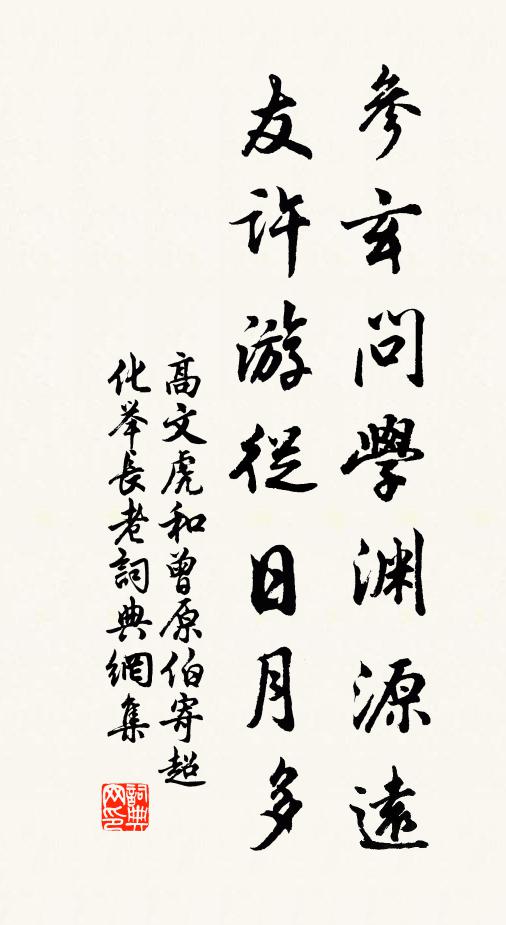 參玄問學淵源遠
友許游從日月多
高文虎和曾原伯寄超
化举長老詞典網集
詞典网印